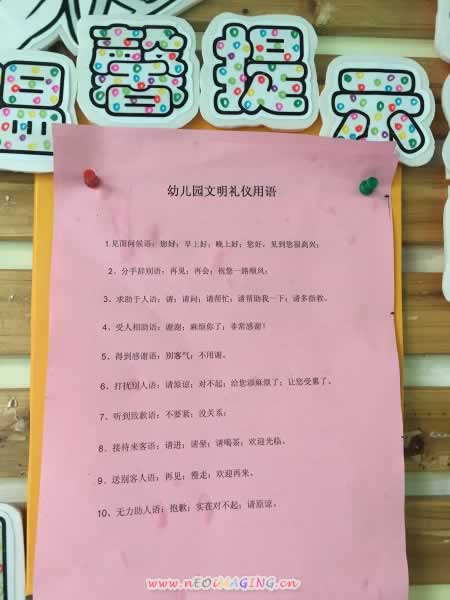 温馨提示
幼儿园文明礼仪用语
1.见面问候语：您好；早上好；晚上好；您好，见到您很高兴；
2、分手辞别语：再见；再会；祝您一路顺风；
3、求助于人语：请；请问；请帮忙；请帮助我一下；请多指教。
4、受人相助语：谢谢；麻烦你了；非常感谢！
5、得到感谢语：别客气；不用谢。
6、打扰别人语：请原谅；对不起；给您添麻烦了；让您受累了。
7、听到致歉语：不要紧；没关系；
8、接待来客语：请进；请坐；请喝茶；欢迎光临。
9、送别客人语：再见；慢走；欢迎再来。
10、无力助人语：抱歉；实在对不起；请原谅。
www.nEOiMAGING.cn